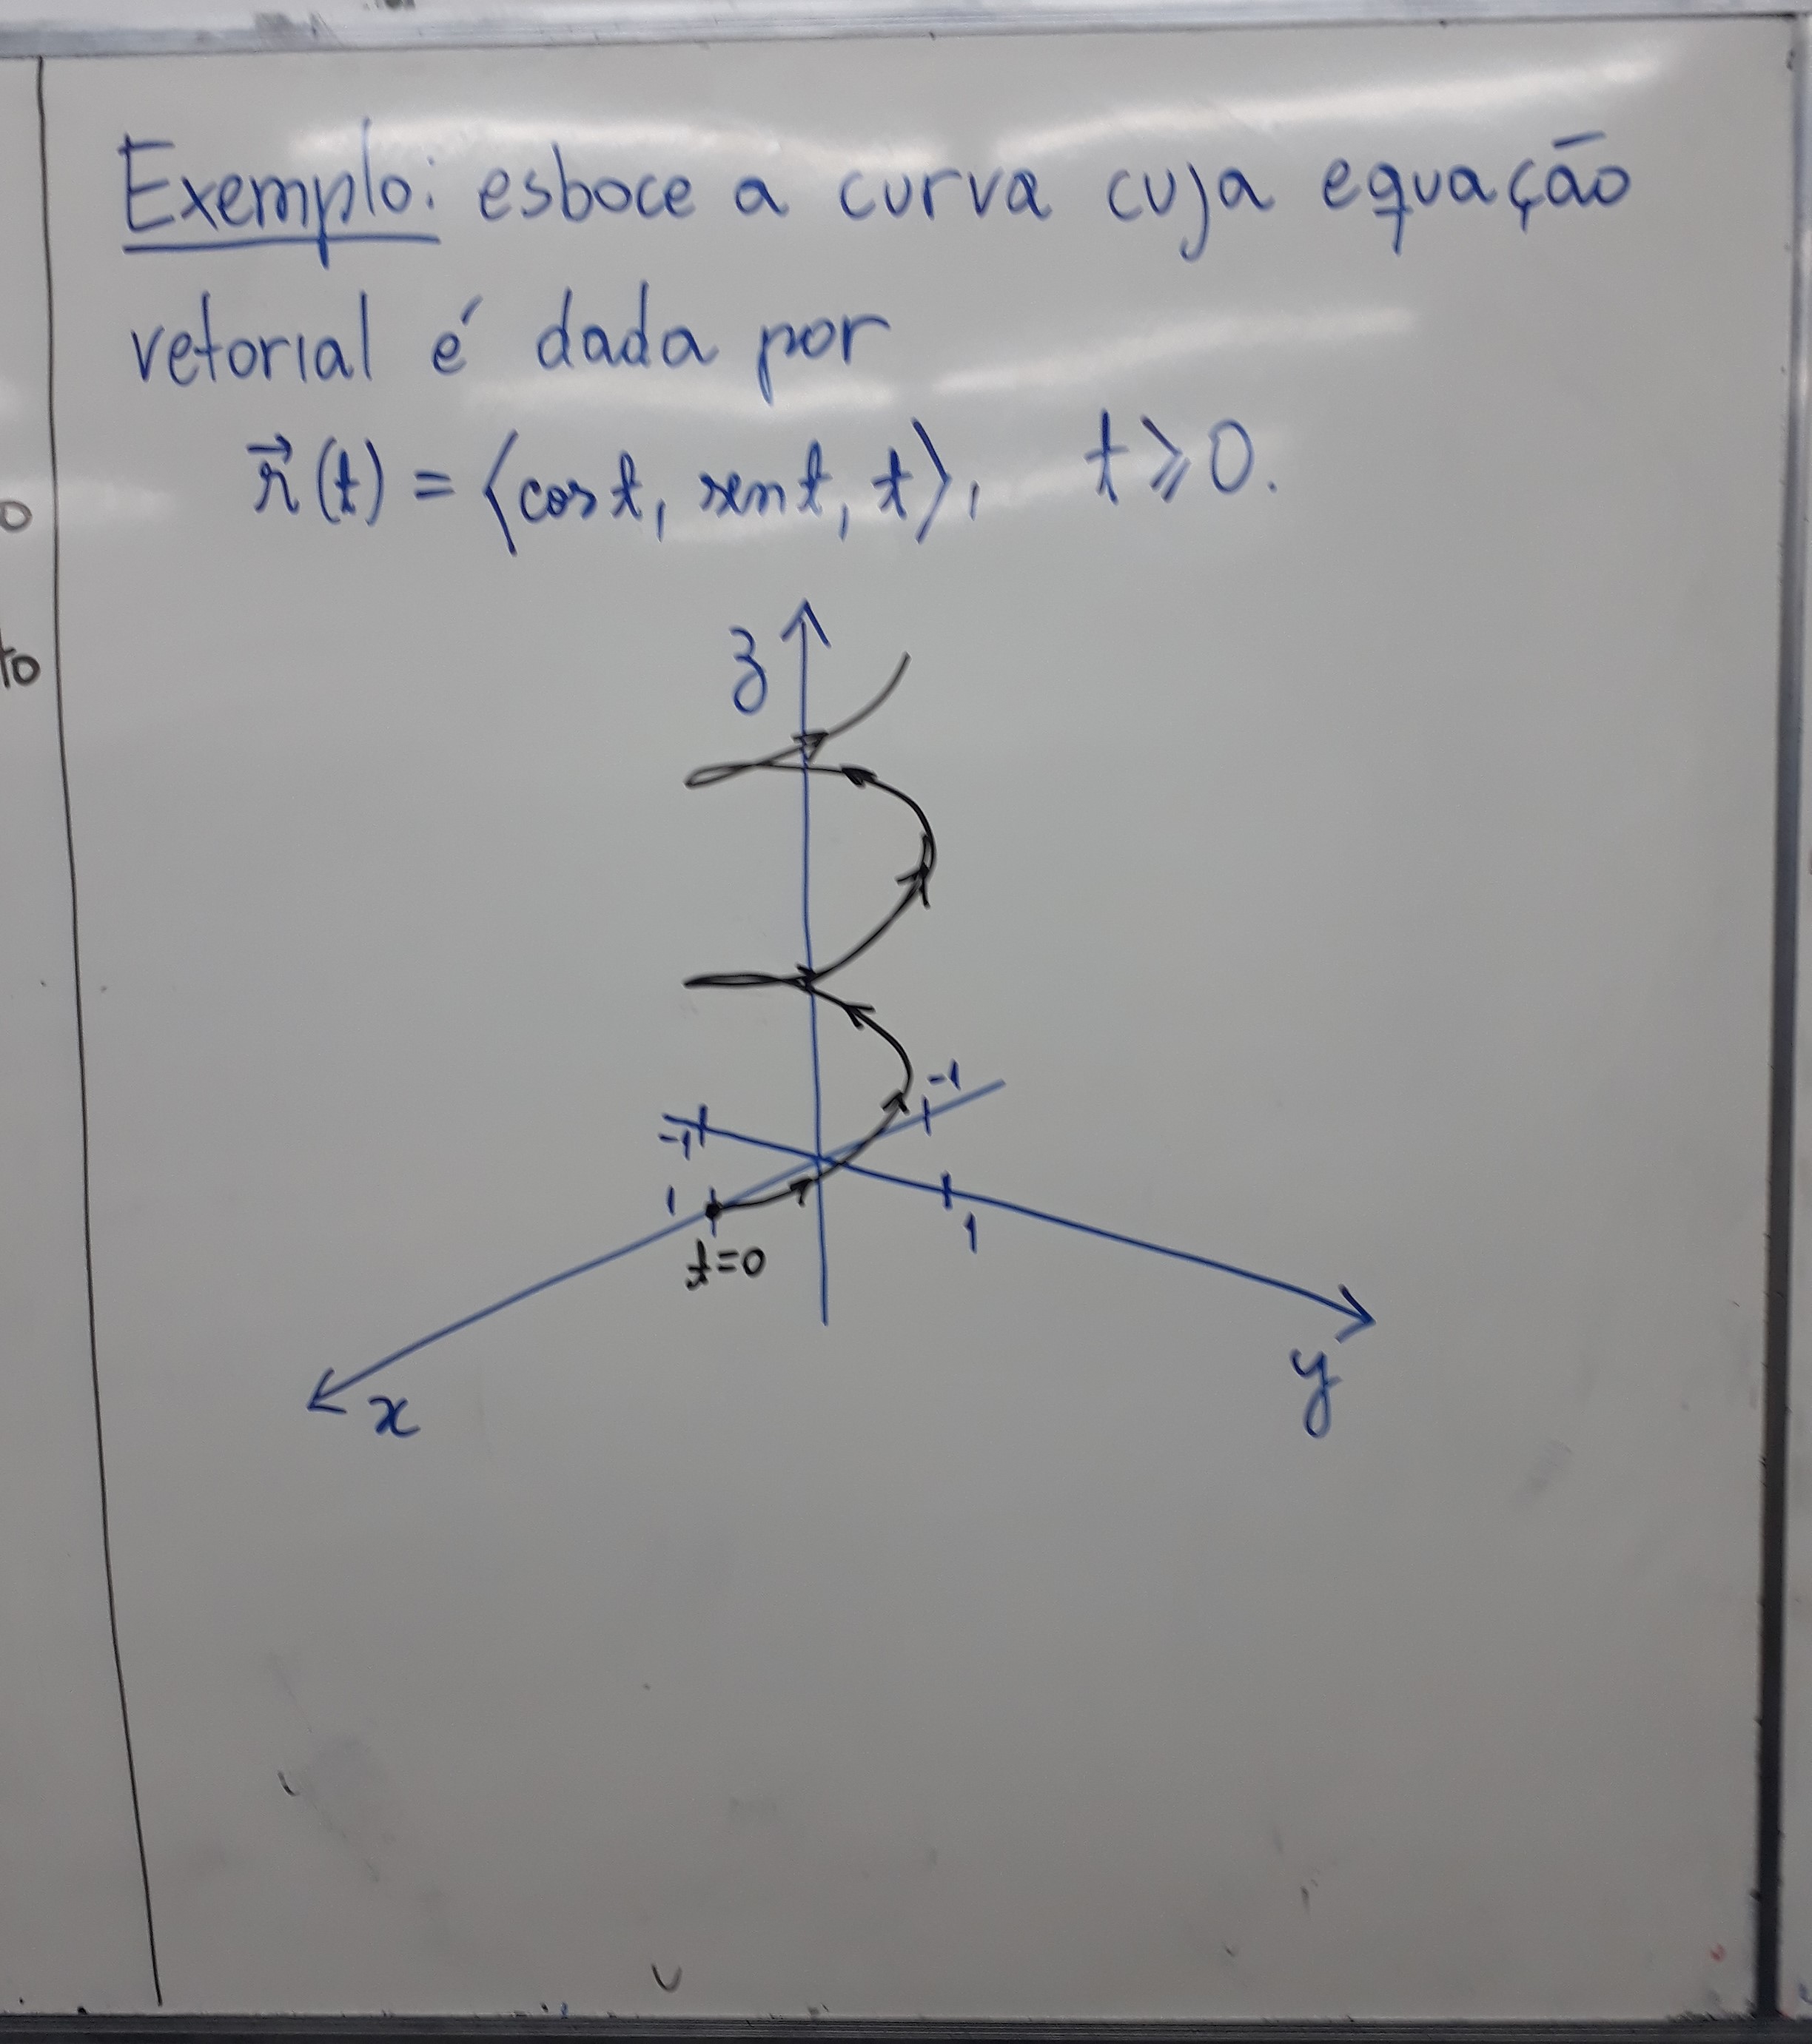 Exemplo: esboce a curva cuja equação
vetorial é dada por
r⃗(t) = ⟨cos t, sen t, t⟩, t ⩾ 0.
o
to
z
-1
-1
1
1
t=0
x
y